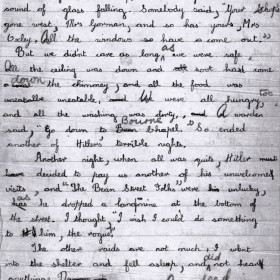 sound of glass falling. Somebody said, "Your shop's
gone west, Mrs Gorman, and so has yours, Mrs
Exley. All the windows so have a come out."
But we didn't care as long as we were safe.
All the ceiling was down and soot had come
down the chimney, and all the food was
uneatable, and We were all hungry too
and all the washing was dirty. A warden
said, "Go down to Bourne Chapel." So ended
another of Hitler's terrible nights.
Another night, when all was quiet, Hitler must
have decided to pay us another of his unwelcomed
visits, and "The Bean Street Folk" were unlucky,
as he dropped a landmine at the bottom of
the street. I thought "I wish I could do something
to him, the rogue"
The other raids are not much, I went
into the shelter and fell asleep, and did not hear
anything